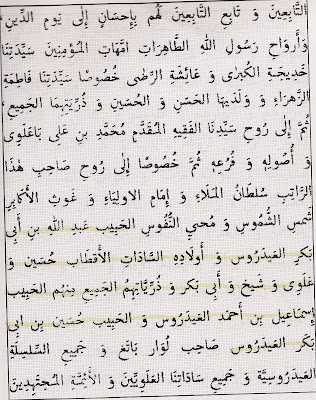 التَّابِعِينَ وَ تَابِعِ التَّابِعِينَ لَهُم بِإِحسَانٍ إِلَى يَومِ الدِّينِ
وَأَروَاحِ رَسُولِ اللهِ الطَّاهِرَاتِ امَّهَاتِ المُؤمِنِينَ سَيِّدَتِنَا
خَدِيجَةِ الكُبرَى وَ عَائِشَةِ الرِّضَى خُصُوصًا سَيِّدَتِنَا فَاطِمَةِ
الزَّهرَاءِ وَ وَلَدَيهَا الحَسَنِ وَ الحُسَينِ وَ ذُرِّيَتِهِمَا الجَمِيعِ،
ثُمَّ إِلَى رُوحِ سَيِّدِنَا الفَقِيهِ المُقَدَّمِ مُحَمَّدِ بنِ عَلِى بَاعَلَوِى
وَ أُصُولِهِ وَ فُرُعِهِ ثُمَّ خُصُوصًا إِلَى رُوحِ صَاحِبِ هٰذَا
الرَّاتِبِ سُلطَانُ المَلَاءِ وَ إِمَامِ الاولِيَاءِ وَ غَوثِ الأَكَابِرِ
شَمسِ الشُّمُوسِ وَ مُحيِي النُّفُوسِ الحَبِيبِ عَبدِ اللهِ بنِ أَبِى
بَكرِ العَيدَرُوسِ وَ أَولَادِهِ السَّادَاتِ الأَقطَابِ حُسَينِ وَ
عَلَوِى وَ شَيخِ وَ أَبِى بَكرِ وَ ذُرِّيَّاتِهِمُ الجَمِيعِ مِنهُم الحَبِيبِ
إِسمَاعِيلِ بنِ أَحمَدِ العَيدَرُوسِ وَ الحَبِيبِ حُسَينِ بنِ ابِى
بَكرِ العَيدَرُوسِ صَاحِبِ لُوَار بَاتَغ وَ جَمِيعِ السِّلسِلَةِ
العَيدَرُوسِيَّةِ وَ جَمِيعِ سَادَاتِنَا العَلَوِيِّينَ وَ الأَئِمَّةِ المُجتَهِدِينَ